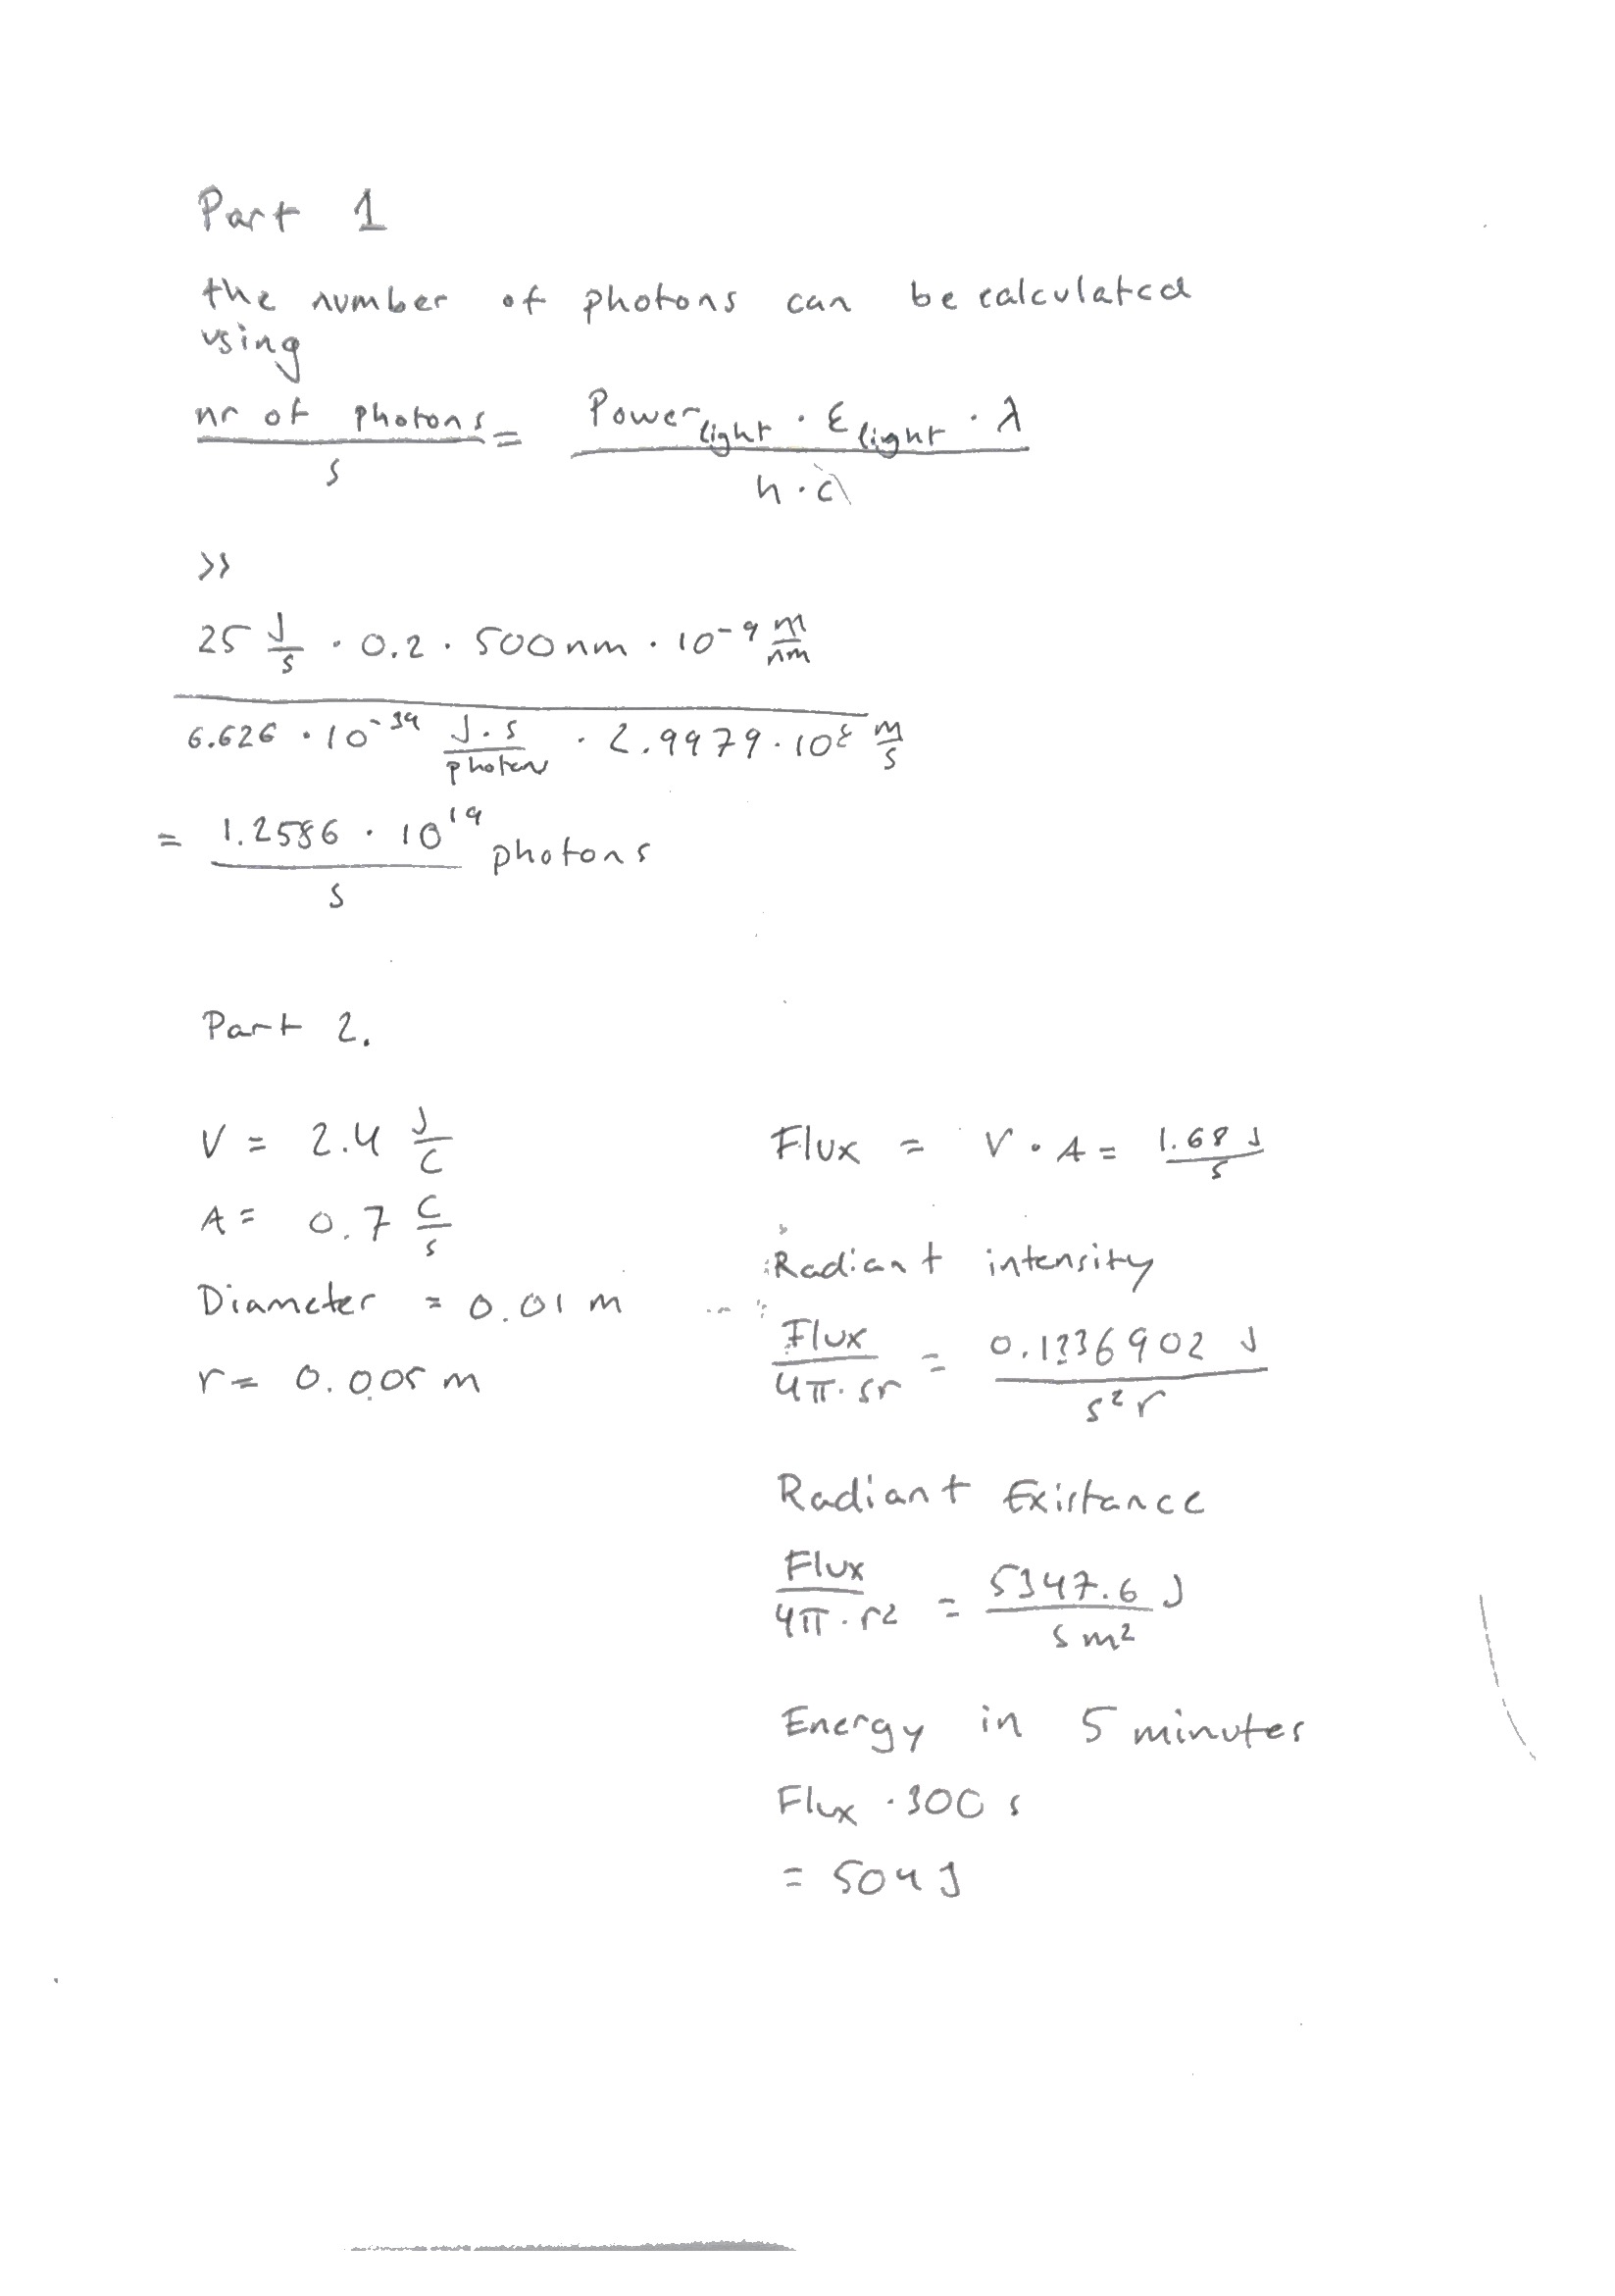 Part 1
the number of photons can be calculated
using
nr of photons / s = Power light · ε light · λ / h · c
>>
25 J/s · 0.2 · 500 nm · 10⁻⁹ m/nm
6.626 · 10⁻³⁴ J·s/photon · 2.9979 · 10⁸ m/s
= 1.2586 · 10¹⁹ / s photons
Part 2.
V = 2.4 J/C
A = 0.7 C/s
Diameter = 0.01 m
r = 0.005 m
Flux = V · A = 1.68 J / s
Radiant intensity
Flux / 4π · sr = 0.1336902 J / s² r
Radiant Existance
Flux / 4π · r2 = 5347.6 J / s m²
Energy in 5 minutes
Flux · 300 s
= 504 J